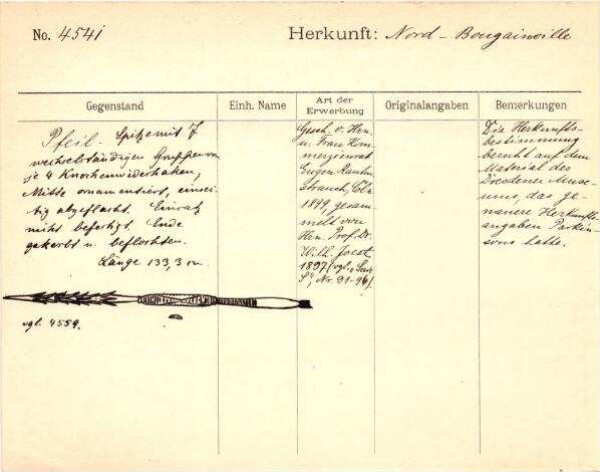 No. 4541
Herkunft: Nord-Bougainville
Gegenstand
Einh. Name
Art der Erwerbung
Originalangaben
Bemerkungen
Pfeil. Spitze mit 7
wechselständigen Gruppen von
je 4 Knochenwiderhaken,
Mitte ornamentiert, einsei-
tig abgeflacht. Einsatz
nicht befestigt. Ende
gekerbt u. beflochten.
Länge 133,3 cm.
vgl. 4559.
Gesch. v. Hrn.
u. Frau Kom-
merzienrat
Eugen Rauten-
strauch, Cöln
1899, gesam-
melt von
Hrn. Prof. Dr.
Wilh. Joest
1897 (vgl.
Nr. 31-96).
Die Herkunfts-
bestimmung
beruht auf dem
Material des
Dresdener Muse-
ums, das ge-
nauere Herkunfts-
angaben Parkin-
sons hatte.